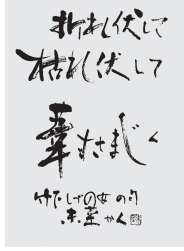 折れ伏して
枯れ伏して
葦すさまじく
竹たしげの女の句
かく